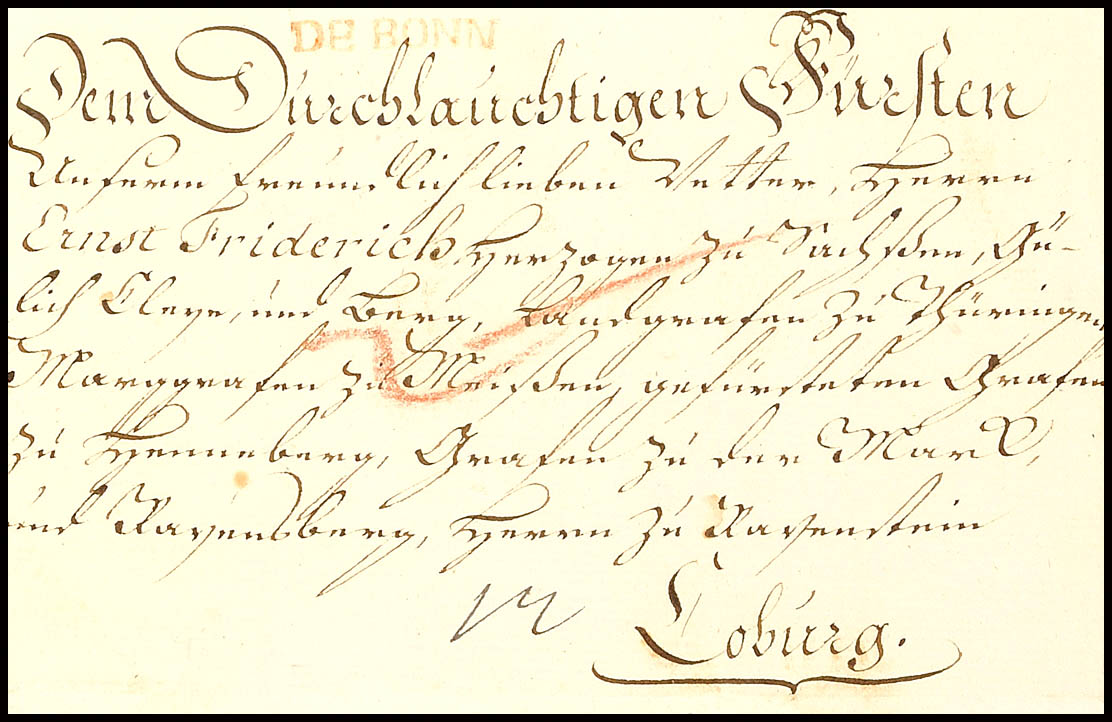 DE BONN
Dem Durchlauchtigen Fürsten
Unserm freundlich lieben Vetter, Herrn
Ernst Friderich Herzogen zu Sachßen, Gü-
lich Cleve, und Berg, Landgrafen zu Thüringen,
Marggrafen zu Meißen, gefürsteten Grafen
zu Henneberg, Grafen zu der Marck,
und Ravensberg, Herrn zu Ravenstein
Coburg.